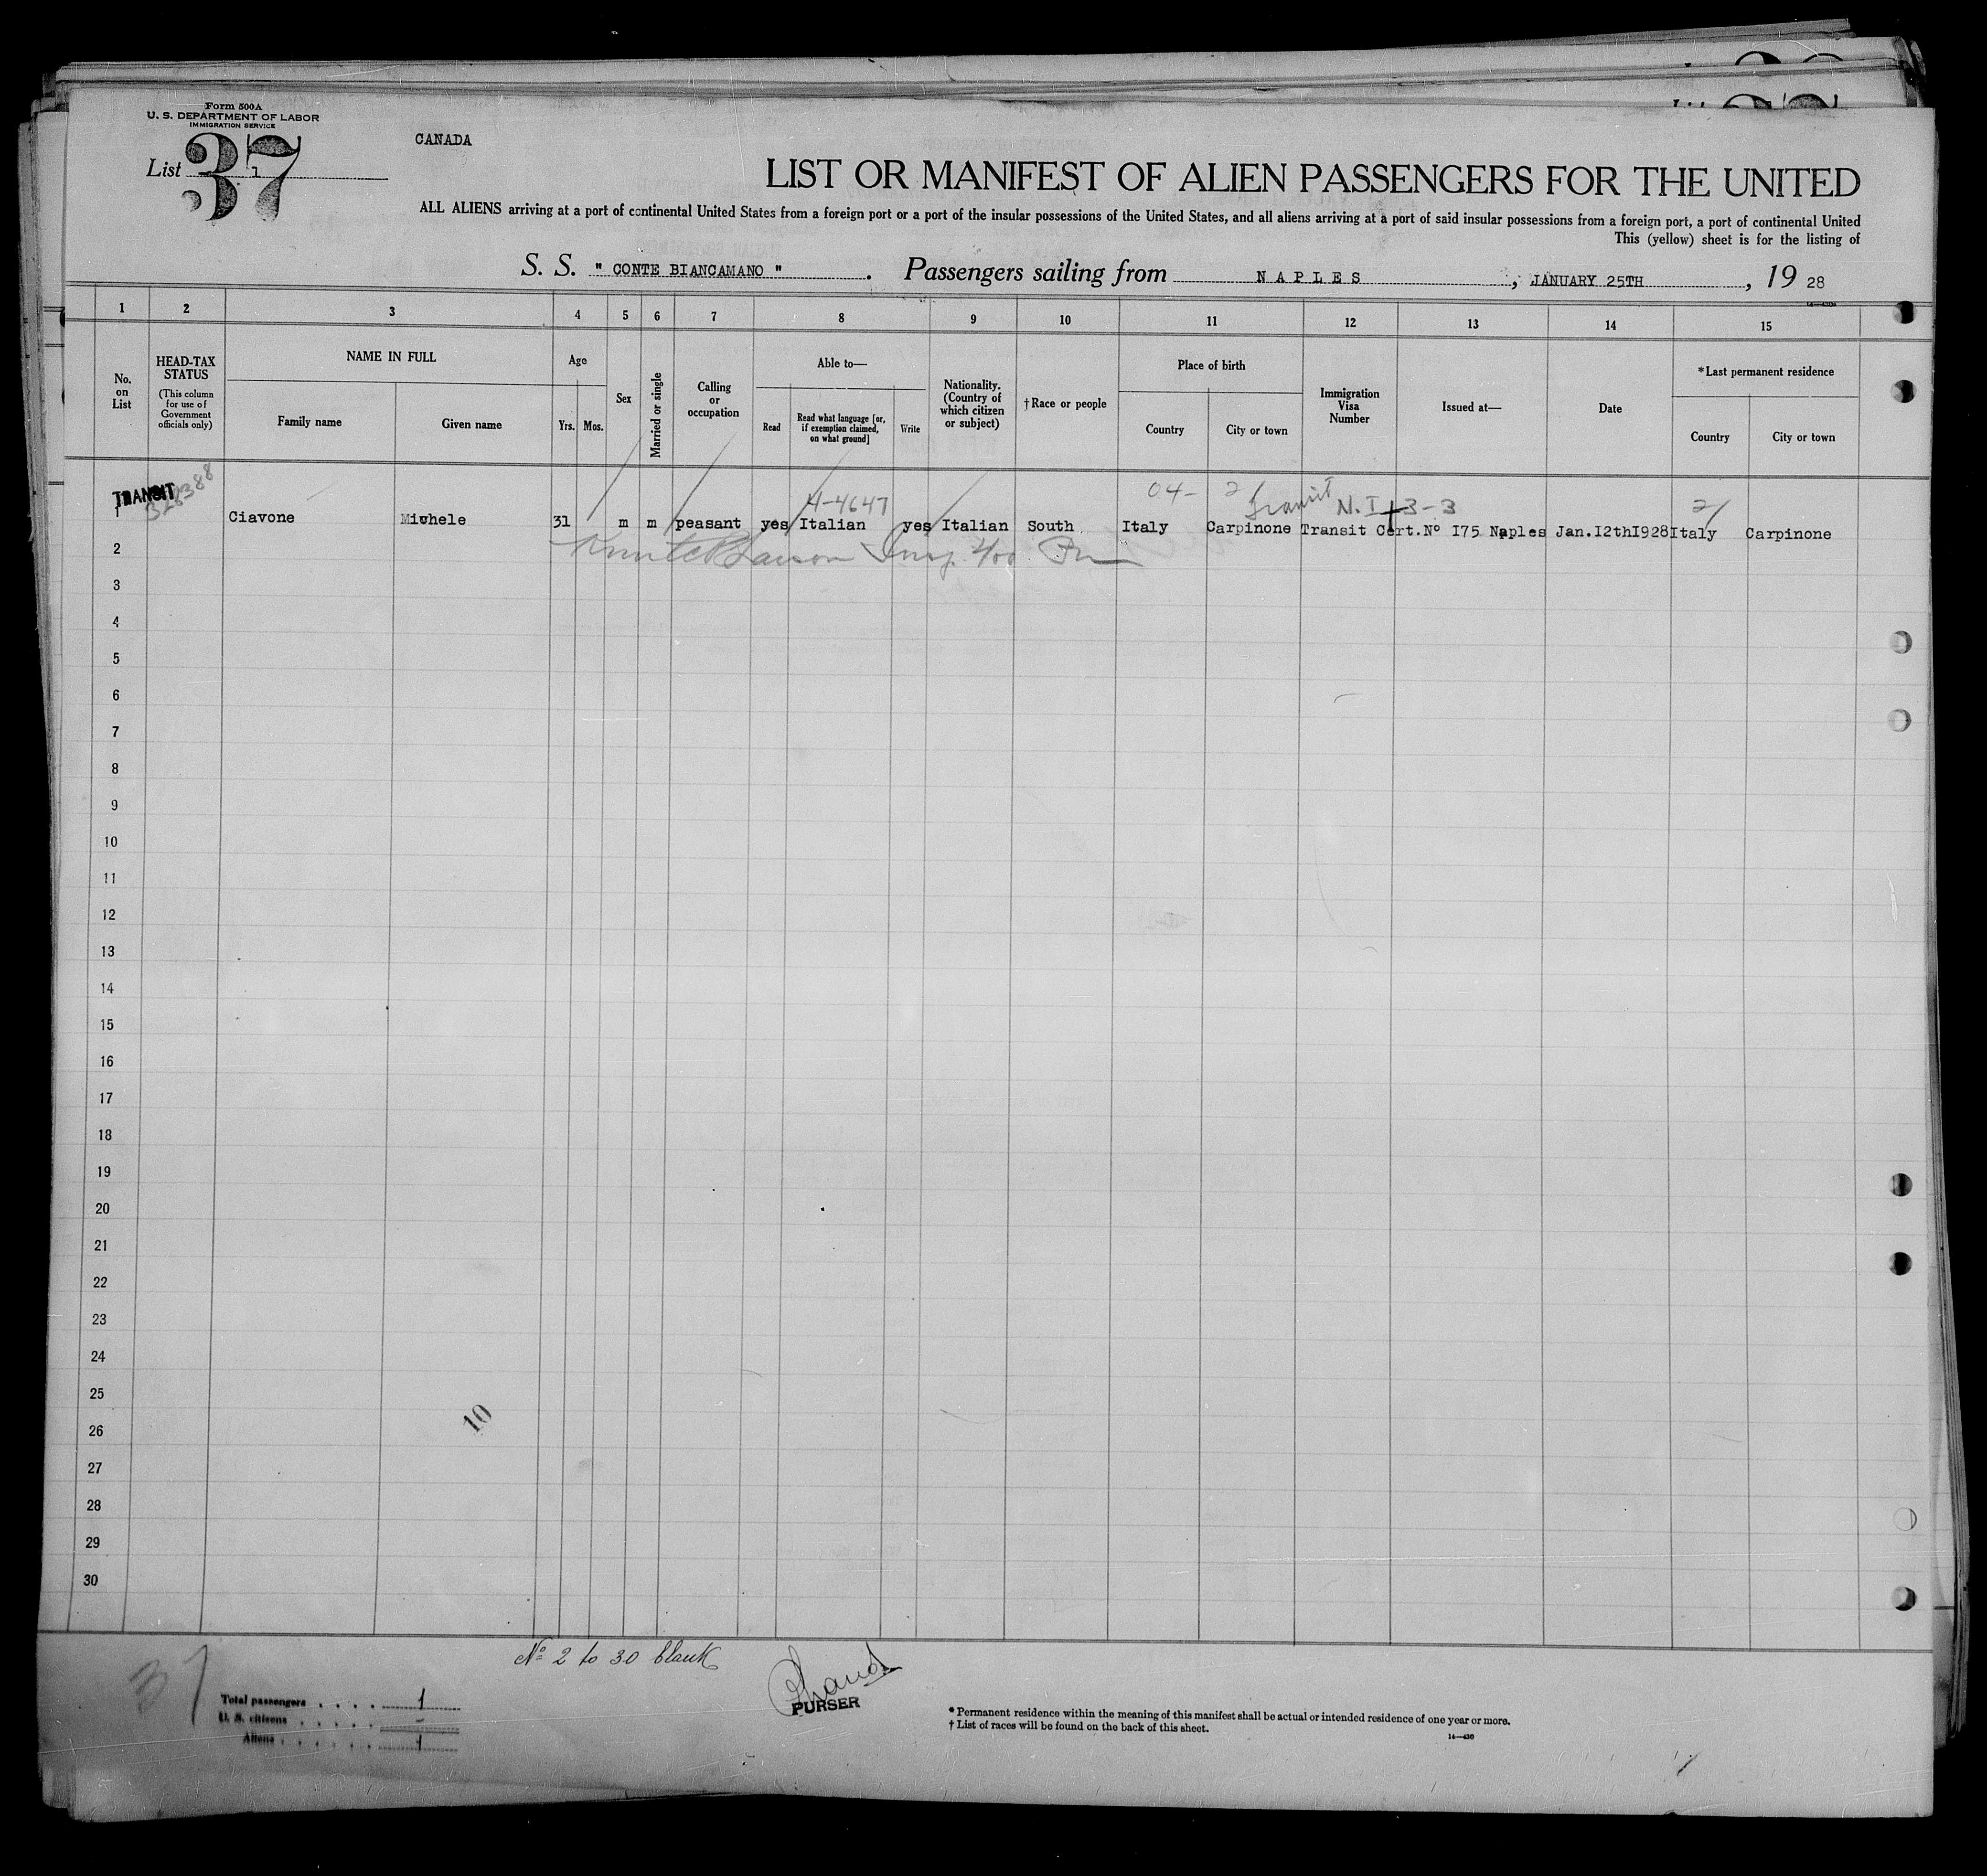 Form 500A
U. S. DEPARTMENT OF LABOR
IMMIGRATION SERVICE
List 1
37
CANADA
LIST OR MANIFEST OF ALIEN PASSENGERS FOR THE UNITED
ALL ALIENS arriving at a port of continental United States from a foreign port or a port of the insular possessions of the United States, and all aliens arriving at a port of said insular possessions from a foreign port, a port of continental United
This (yellow) sheet is for the listing of
S. S. " CONTE BIANCAMANO ". Passengers sailing from NAPLES, JANUARY 25TH, 19 28
1 2 3 4 5 6 7 8 9 10 11 12 13 14 15
No. on List
HEAD-TAX STATUS
(This column for use of Government officials only)
NAME IN FULL
Family name
Given name
Age
Yrs. Mos.
Sex
Married or single
Calling or occupation
Able to—
Read
Read what language [or, if exemption claimed, on what ground]
Write
Nationality. (Country of which citizen or subject)
†Race or people
Place of birth
Country
City or town
Immigration Visa Number
Issued at—
Date
*Last permanent residence
Country
City or town
TRANSIT
4-4647
04- 21 Transit N.I+3-3 21
1 Ciavone Michele 31 m m peasant yes Italian yes Italian South Italy Carpinone Transit Cert.Nº I75 Naples Jan.I2thI928 Italy Carpinone
2
3
4
5
6
7
8
9
10
11
12
13
14
15
16
17
18
19
20
21
22
23
24
25
26
27
28
29
30
10
Nº 2 to 30 blank
37
PURSER
Total passengers . . . . 1
U. S. citizens . . . . . -
Aliens . . . . . . 1
* Permanent residence within the meaning of this manifest shall be actual or intended residence of one year or more.
† List of races will be found on the back of this sheet.
14—430